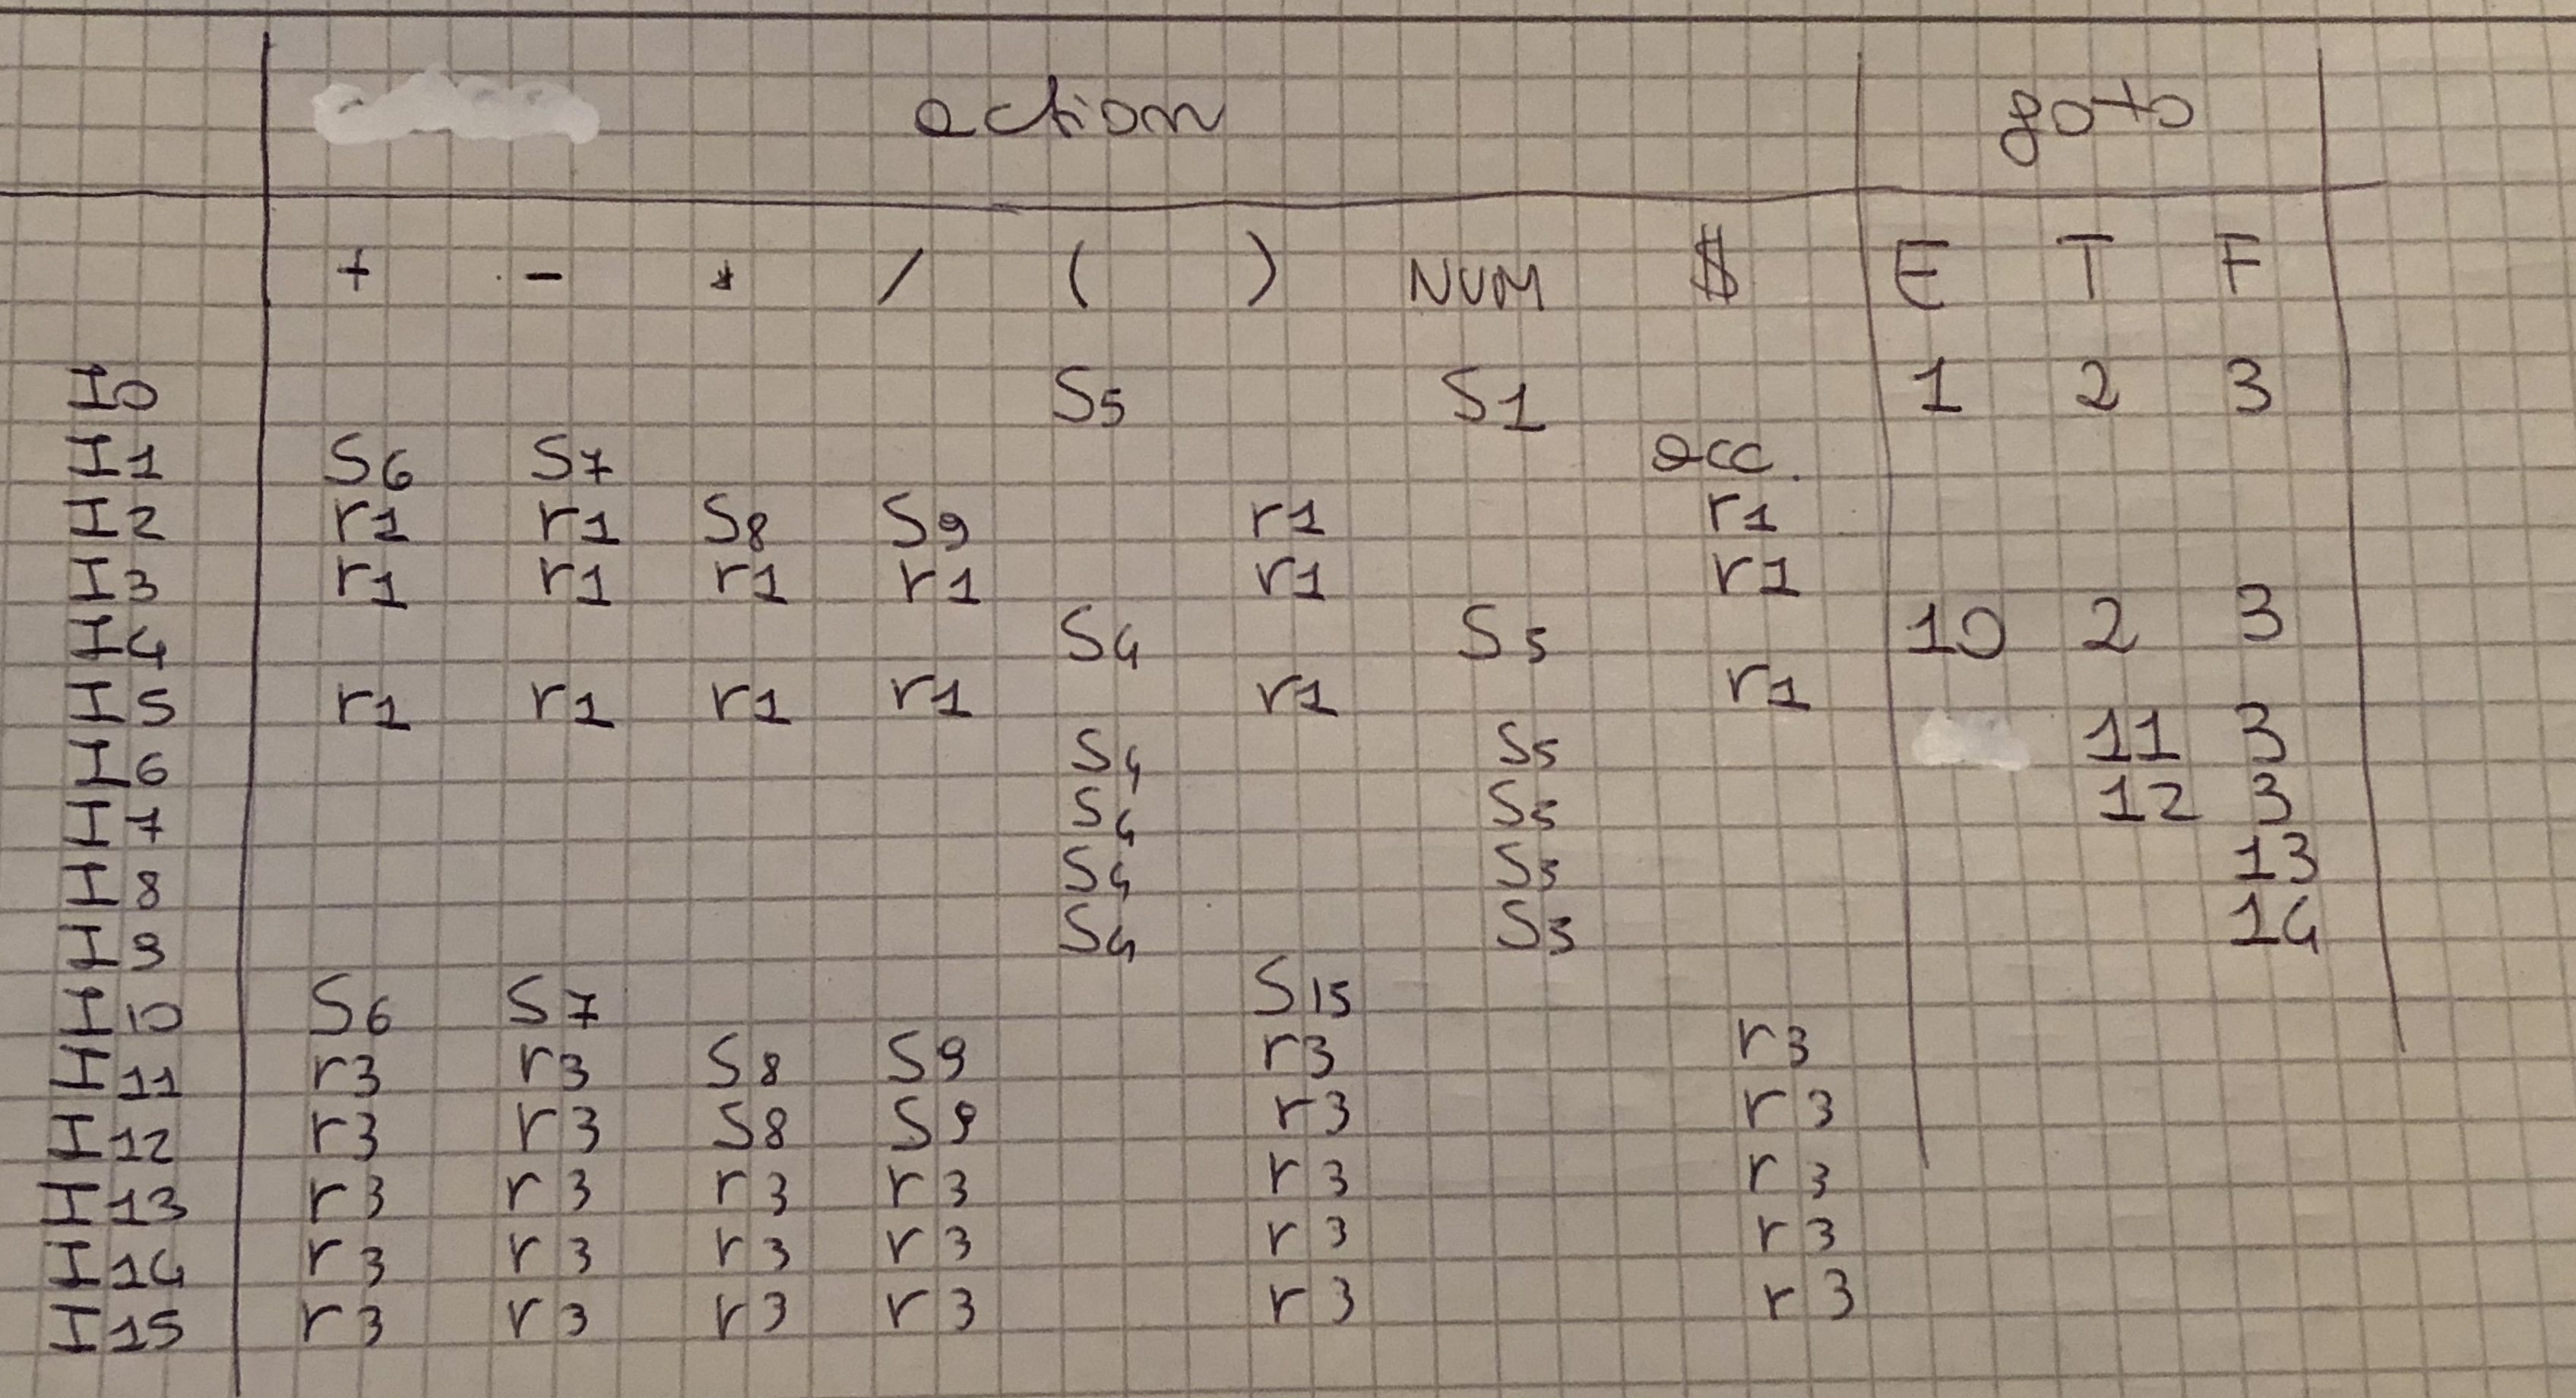 action goto
+ - * / ( ) NUM $ E T F
I0 S5 S1 1 2 3
I1 S6 S7 acc.
I2 r1 r1 S8 S9 r1 r1
I3 r1 r1 r1 r1 r1 r1
I4 S4 S5 10 2 3
I5 r1 r1 r1 r1 r1 r1
I6 S4 S5 11 3
I7 S4 S5 12 3
I8 S4 S5 13
I9 S4 S5 14
I10 S6 S7 S15
I11 r3 r3 S8 S9 r3 r3
I12 r3 r3 S8 S9 r3 r3
I13 r3 r3 r3 r3 r3 r3
I14 r3 r3 r3 r3 r3 r3
I15 r3 r3 r3 r3 r3 r3